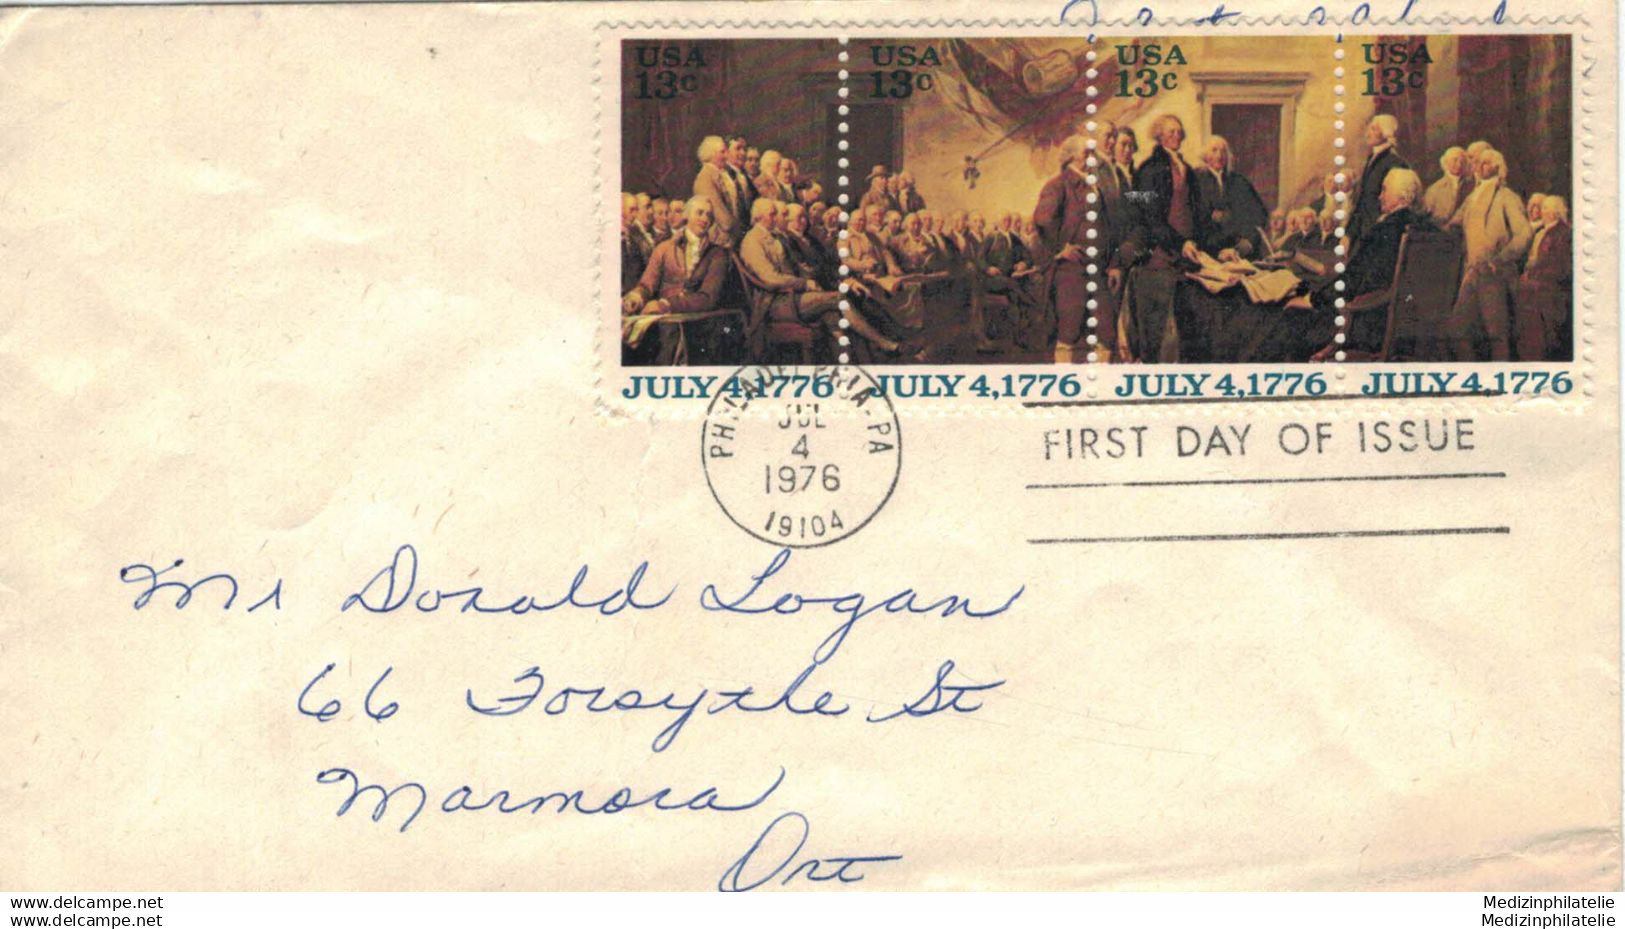 USA 13c USA 13c USA 13c USA 13c
JULY 4,1776 JULY 4,1776 JULY 4,1776 JULY 4,1776
PHILADELPHIA-PA
JUL
4
1976
19104
FIRST DAY OF ISSUE
Mr Donald Logan
66 Forsythe St
Marmora
Ont
www.delcampe.net
www.delcampe.net
Medizinphilatelie
Medizinphilatelie